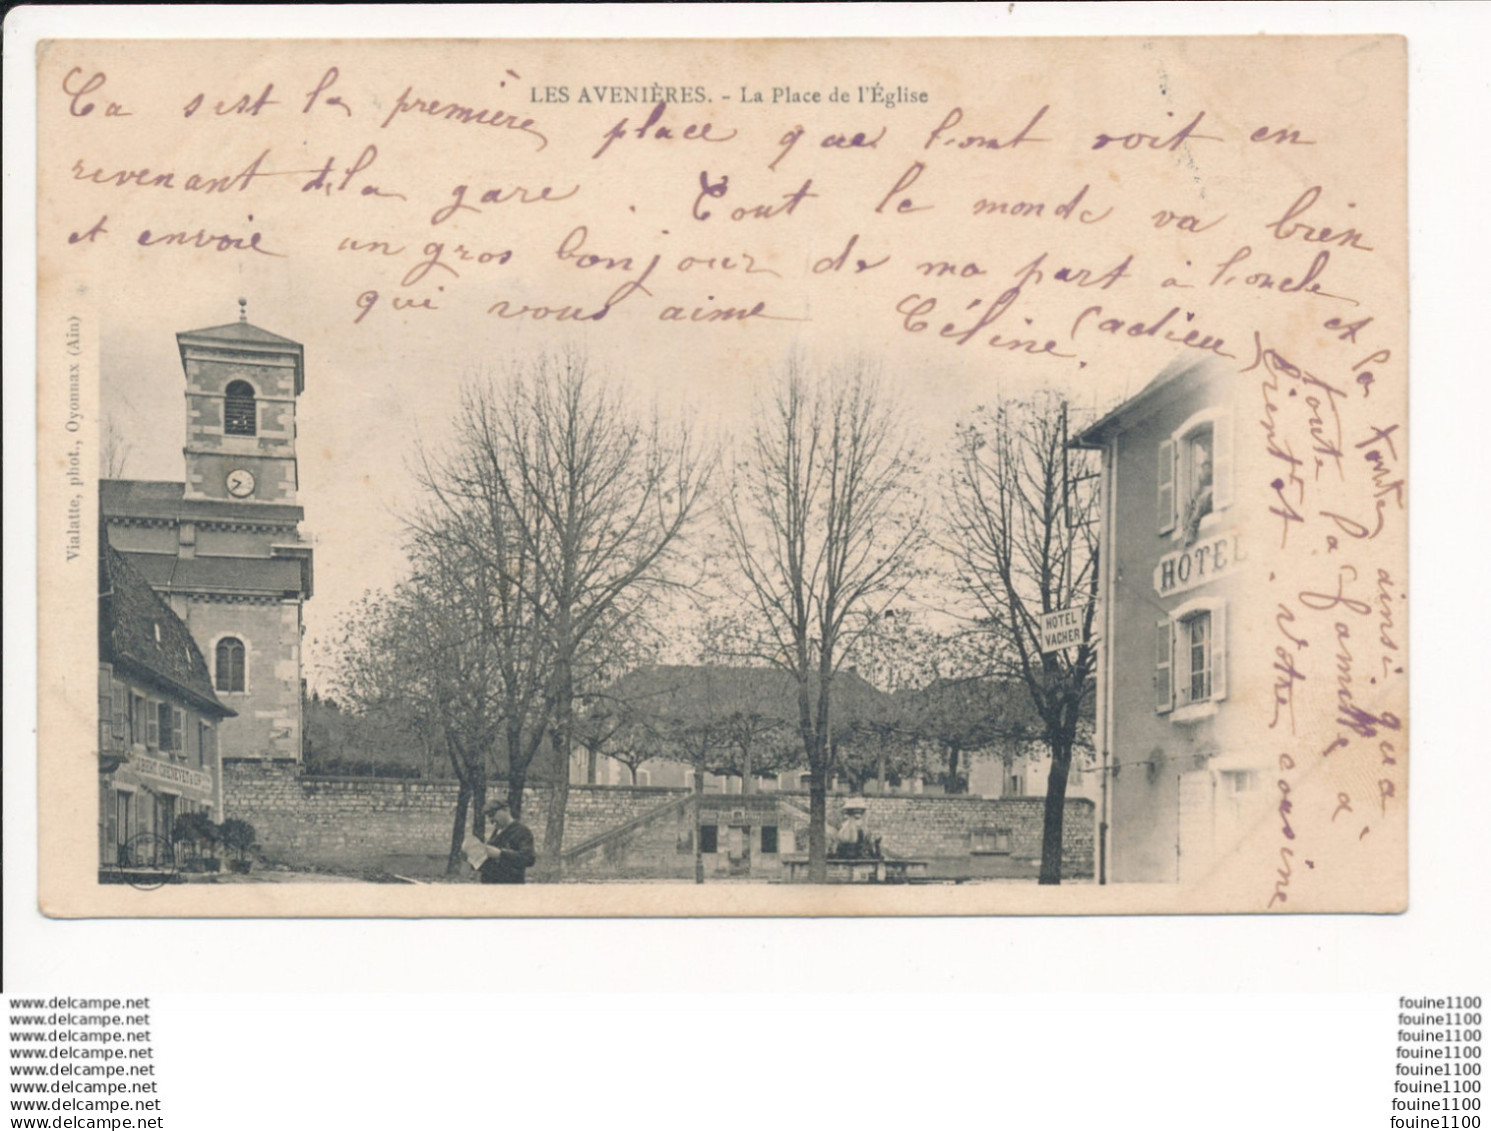 LES AVENIÈRES. - La Place de l'Église
Ça s'est la première place que l'ont voit en
revenant de la gare. Tout le monde va bien
et envoie un gros bonjour de ma part à l'oncle
et la tante, ainsi qu'à
toute la famille à
qui vous aime Céline (adieu
bientôt. votre cousine
Vialatte, phot., Oyonnax (Ain)
HOTEL
HOTEL
VACHER
CHENEVET
www.delcampe.net
www.delcampe.net
www.delcampe.net
www.delcampe.net
www.delcampe.net
www.delcampe.net
www.delcampe.net
www.delcampe.net
fouine1100
fouine1100
fouine1100
fouine1100
fouine1100
fouine1100
fouine1100
fouine1100